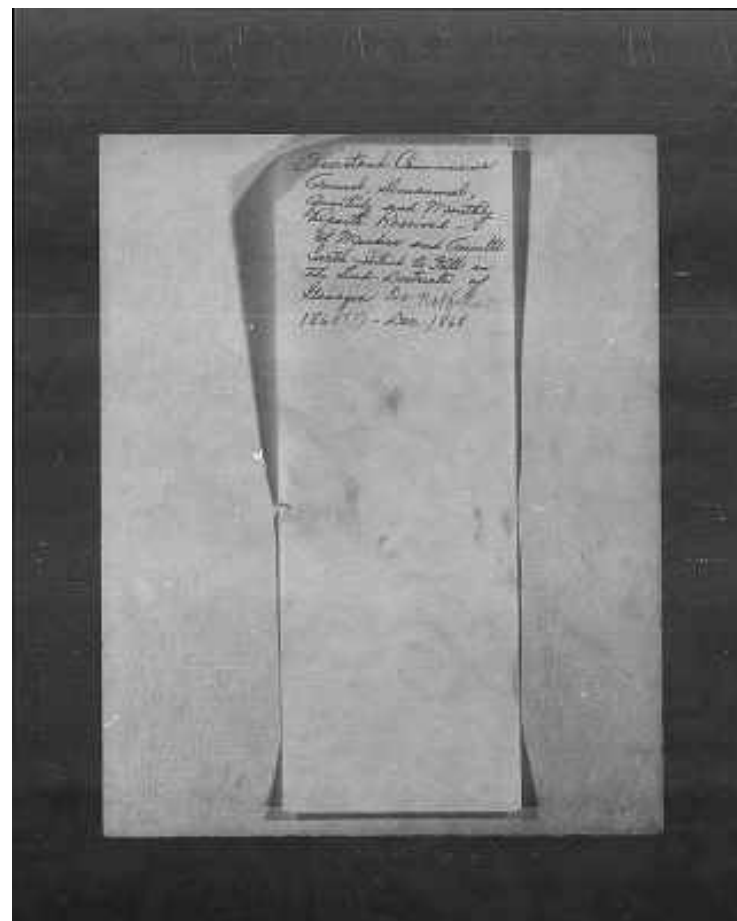 Assistant Commissioner
Annual, Semiannual,
Quarterly and Monthly
Reports Received
of Murders and Assaults
with intent to Kill in
the Sub-Districts of
Georgia
186 - Dec. 1868